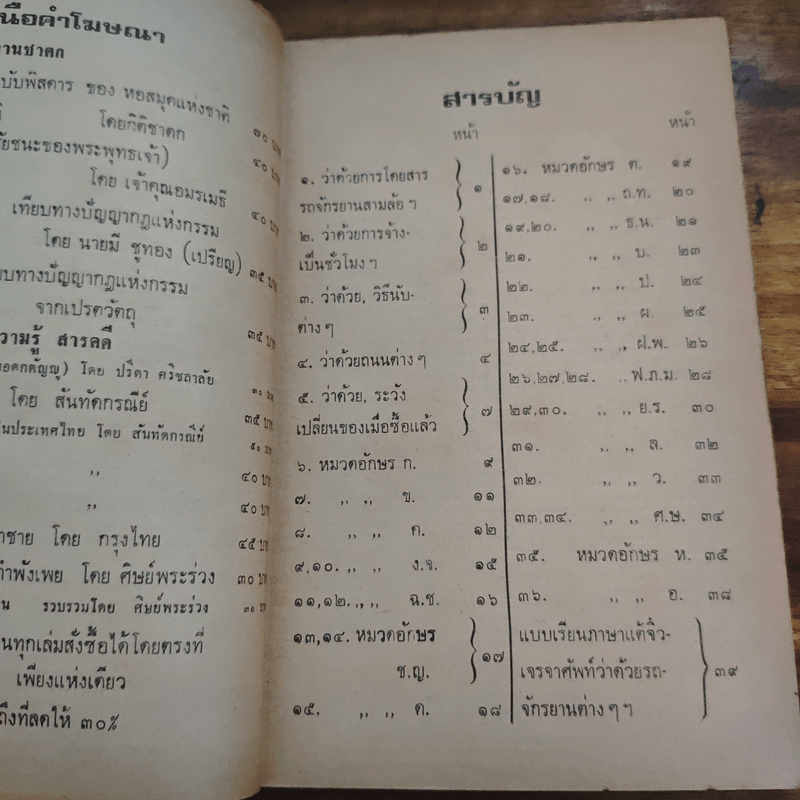 นือคำโฆษณา
านชาดก
บับพิสดาร ของ หอสมุดแห่งชาติ ๗๐ บาท
โดยกิติชาดก
ชัยชนะของพระพุทธเจ้า) ๔๐ บาท
โดย เจ้าคุณอมรเมธี
เทียบทางบัญญากฎแห่งกรรม ๔๐ บาท
โดย นายมี ชูทอง (เปรียญ)
บบทางบัญญากฎแห่งกรรม ๓๕ บาท
จากเปรตวัตถุ
วามรู้ สารคดี ๓๕ บาท
ยอดกตัญญู) โดย ปรีดา ศรีชลาลัย ๓๐ บาท
โดย สันทัดกรณีย์ ๓๕ บาท
นประเทศไทย โดย สันทัดกรณีย์ ๕๐ บาท
,, ๔๐ บาท
,, ๔๐ บาท
าชาย โดย กรุงไทย ๔๕ บาท
กำพังเพย โดย ศิษย์พระร่วง ๓๐ บาท
รวบรวมโดย ศิษย์พระร่วง ๓๐ บาท
นทุกเล่มสั่งซื้อได้โดยตรงที่
เพียงแห่งเดียว
ถึงที่ลดให้ ๓๐%
สารบัญ
หน้า
๑. ว่าด้วยการโดยสาร
รถจักรยานสามล้อ ฯ ๑
๒. ว่าด้วยการจ้าง-
เป็นชั่วโมง ฯ ๒
๓. ว่าด้วย, วิธีนับ-
ต่าง ๆ ๓
๔. ว่าด้วยถนนต่าง ๆ ๔
๕. ว่าด้วย, ระวัง
เปลี่ยนของเมื่อซื้อแล้ว ๗
๖. หมวดอักษร ก. ๙
๗. ,, ,, ข. ๑๑
๘. ,, ,, ค. ๑๒
๙,๑๐. ,, ,, ง.จ. ๑๕
๑๑,๑๒. ,, ,, ฉ.ช. ๑๖
๑๓,๑๔. หมวดอักษร
ซ.ญ. ๑๗
๑๕. ,, ,, ด. ๑๘
หน้า
๑๖. หมวดอักษร ต. ๑๙
๑๗,๑๘. ,, ,, ถ.ท. ๒๐
๑๙,๒๐. ,, ,, ธ.น. ๒๑
๒๑. ,, ,, บ. ๒๓
๒๒. ,, ,, ป. ๒๔
๒๓. ,, ,, ผ. ๒๕
๒๔,๒๕. ,, ,, ฝ.พ. ๒๖
๒๖,๒๗,๒๘. ,, ฟ.ภ.ม. ๒๘
๒๙,๓๐. ,, ,, ย.ร. ๓๐
๓๑. ,, ,, ล. ๓๒
๓๒. ,, ,, ว. ๓๓
๓๓,๓๔. ,, ,, ศ.ษ. ๓๔
๓๕. หมวดอักษร ห. ๓๕
๓๖. ,, ,, อ. ๓๘
แบบเรียนภาษาแต้จิ๋ว-
เจรจาศัพท์ว่าด้วยรถ-
จักรยานต่าง ๆ ฯ ๓๙